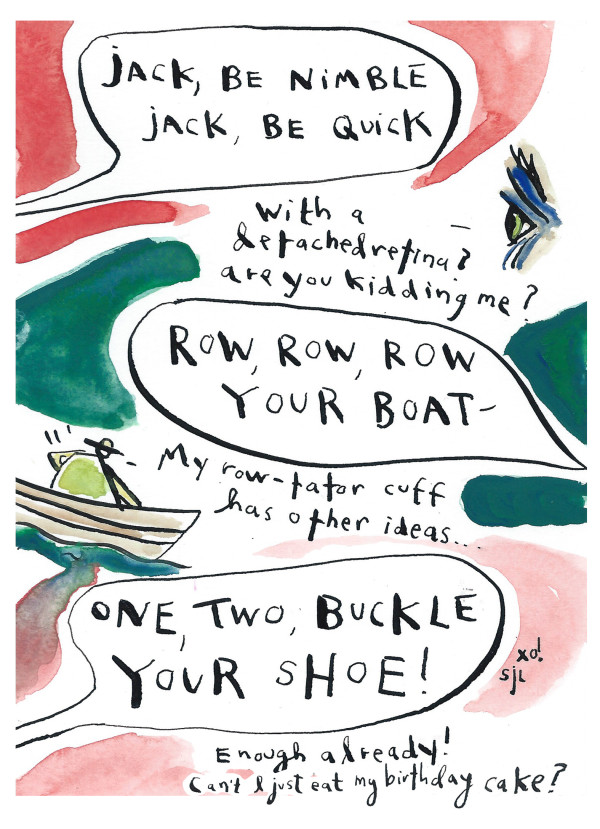 JACK, BE NIMBLE
JACK, BE QUICK
With a
detached retina?
are you kidding me?
ROW, ROW, ROW
YOUR BOAT-
My row-tator cuff
has other ideas...
ONE, TWO, BUCKLE
YOUR SHOE!
xo!
sjl
Enough already!
Can't I just eat my birthday cake?